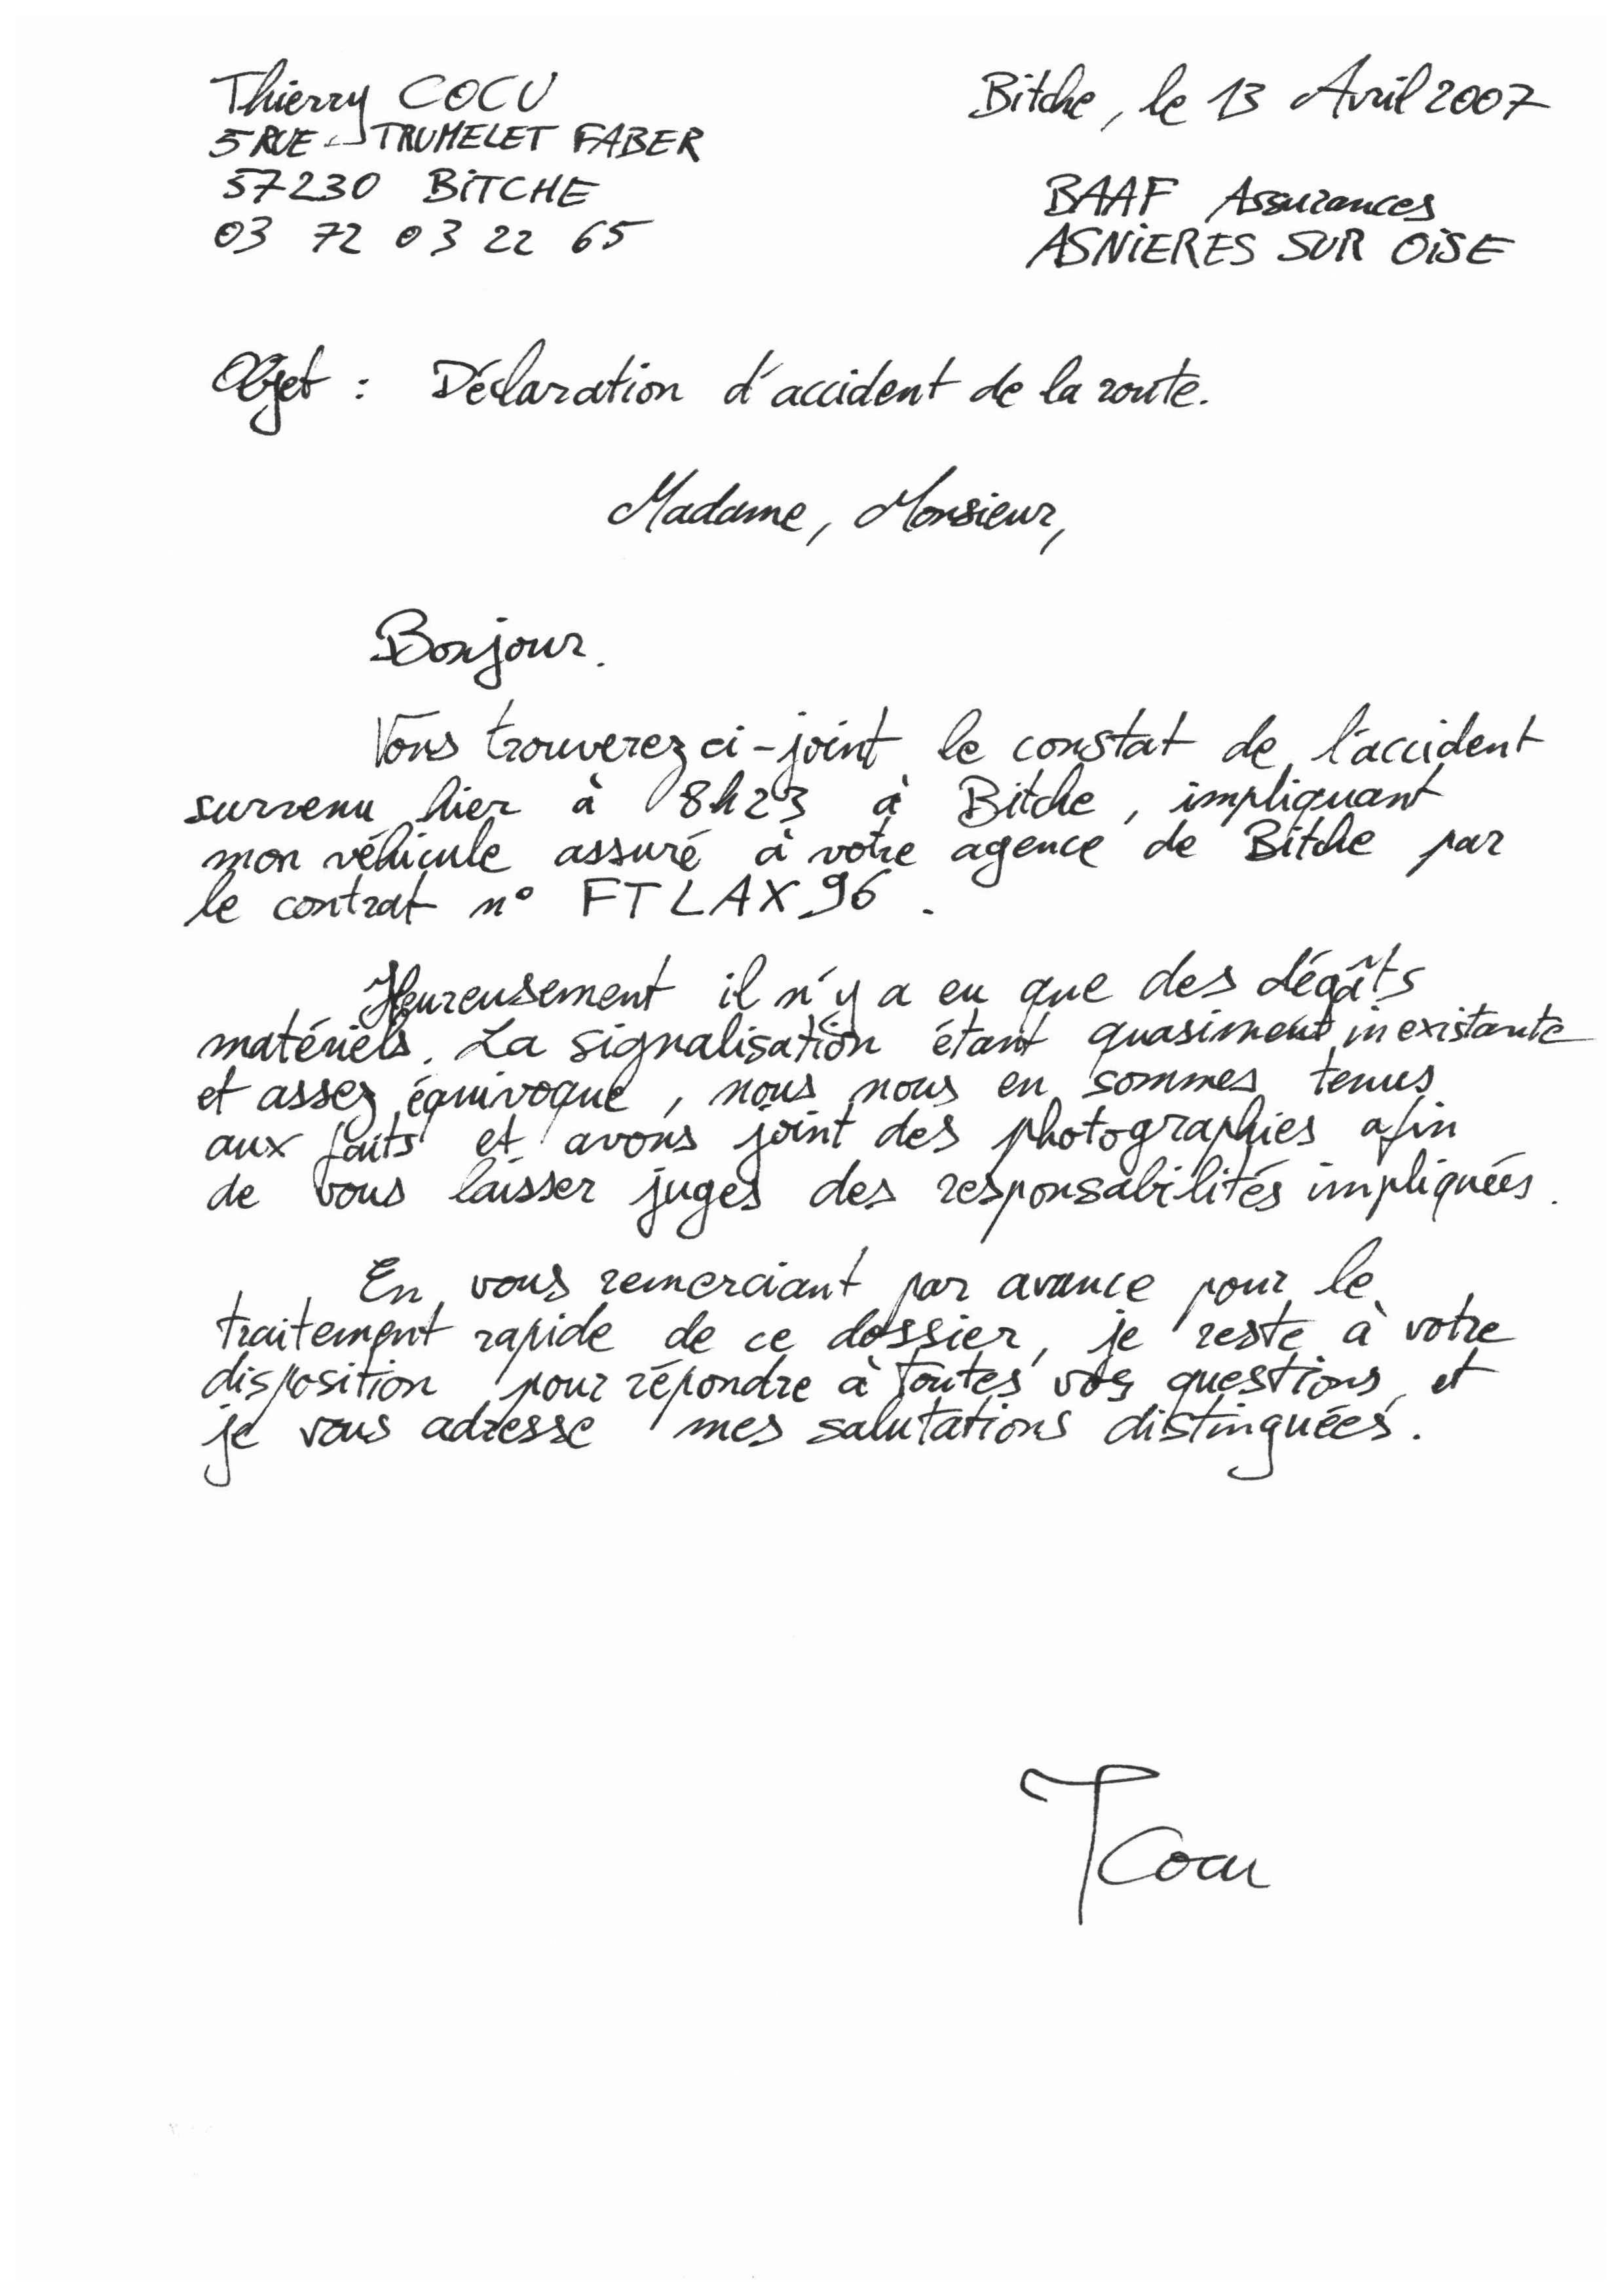 Thierry COCU
5 RUE TRUMELET FABER
57230 BITCHE
03 72 03 22 65
Bitche, le 13 Avril 2007
BAAF Assurances
ASNIERES SUR OISE
Objet : Déclaration d'accident de la route.
Madame, Monsieur,
Bonjour.
Vous trouverez ci-joint le constat de l'accident
survenu hier à 8h23 à Bitche, impliquant
mon véhicule assuré à votre agence de Bitche par
le contrat n° FTLAX96.
Heureusement il n'y a eu que des dégâts
matériels. La signalisation étant quasiment inexistante
et assez équivoque, nous nous en sommes tenus
aux faits et avons joint des photographies afin
de vous laisser juges des responsabilités impliquées.
En vous remerciant par avance pour le
traitement rapide de ce dossier, je reste à votre
disposition pour répondre à toutes vos questions et
je vous adresse mes salutations distinguées.
T Cocu